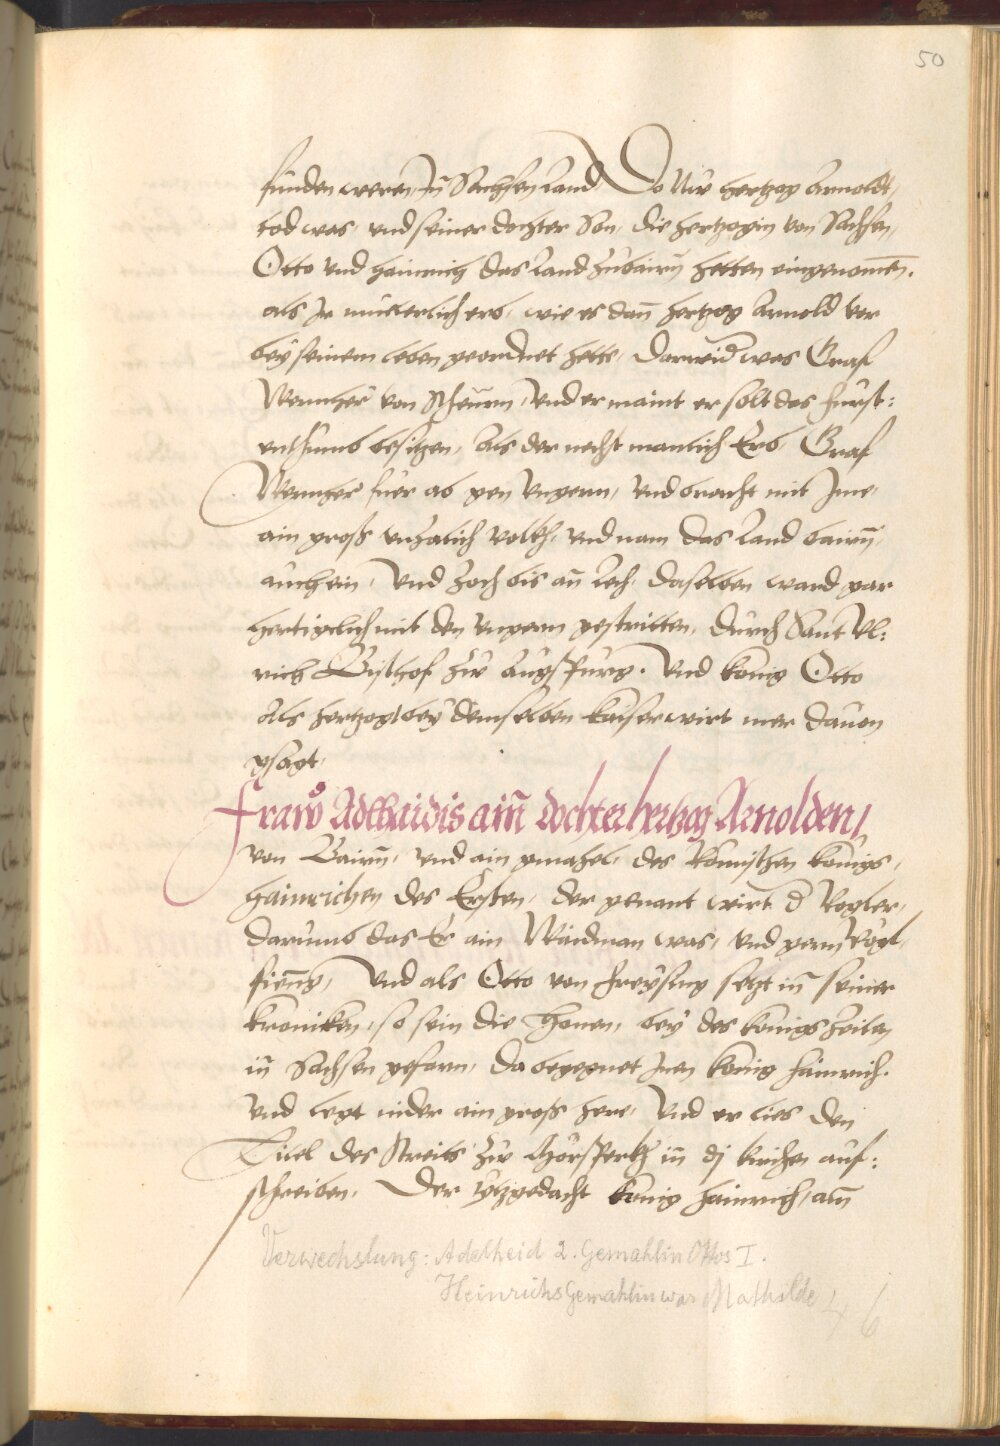 50
funden weren, Jn Sachsen Land Do Nu hertzog Arnoldt,
tod was, vnd seiner dochter Son, die hertzogin von Sachsen,
Otto vnd Hainrich das Land zu bairn hetten eingenomen.
als Jr mueterlich erb, wie es dan hertzog Arnold vor
bey seinem leben geordnet hette, Darwid was Graf
Wernher von Scheurn, Vnd er maint er solt das furst:
enthumb besitzen, Als der nechst manlich Erb, Graf
Wernher fuer ab gen Vngern, vnd bracht mit Jme,
ain gross vnzalich volkh, vnd nam das Land bairn,
auch ein, Vnd zoch bis an Lech, daselben ward gar
hertigclich mit den vngern gestritten, durch Sant Vl:
rich Bischof zu Augspurg. Vnd konig Otto
Als hertzog bey demselben kaiser wirt mer dauon
gsagt.
Fraw Adlhaidis ain dochter hertzog Arnolden,
von Bairn, vnd ain gmahel, des Romischen konigs,
Hainrichen des Ersten, der genant wirt d Vogler,
darumb das Er ain Waidman was, vnd gern vogl
fieng, Vnd als Otto von Freysing setzt in seiner
kroniken, so sein die Honen, bey des konigs zeiten
in Sachsen gefarn, da begegnet Jnen konig Hainrich.
vnd legt nider ain gross here, Vnd er lies den
Titel des Streits zu Morsperkh in dj kirchen auf:
schreiben, Der ytzgedacht konig Hainrich, am
Verwechslung: Adelheid 2. Gemahlin Ottos I.
Heinrichs Gemahlin war Mathilde